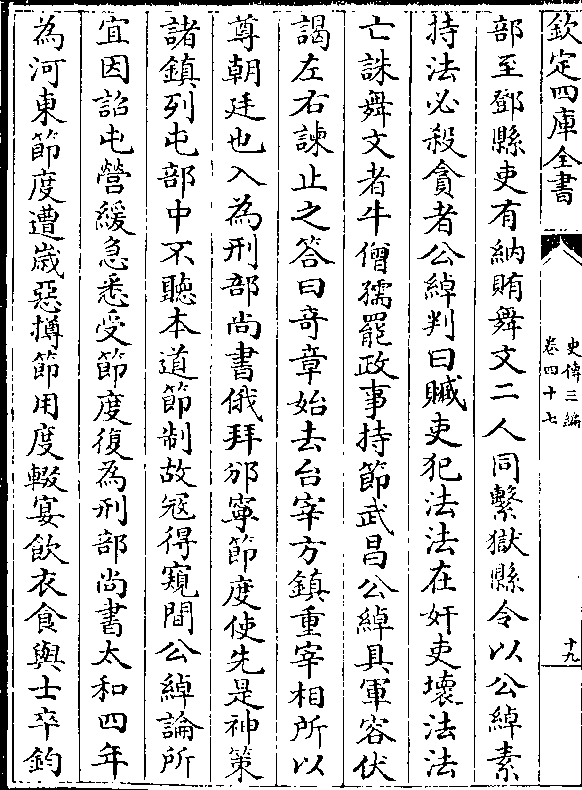 欽定四庫全書
史傳三編
卷四十七
十九
部至鄧縣吏有納賄舞文二人同繫獄縣令以公綽素
持法必殺貪者公綽判曰贓吏犯法法在奸吏壞法法
亡誅舞文者牛僧孺罷政事持節武昌公綽具軍容伏
謁左右諫止之答曰奇章始去台宰方鎮重宰相所以
尊朝廷也入為刑部尚書俄拜邠寧節度使先是神策
諸鎮列屯部中不聽本道節制故冦得窺間公綽論所
宜因詔屯營緩急悉受節度復為刑部尚書太和四年
為河東節度遭歲惡撙節用度輟宴飲衣食與士卒鈞